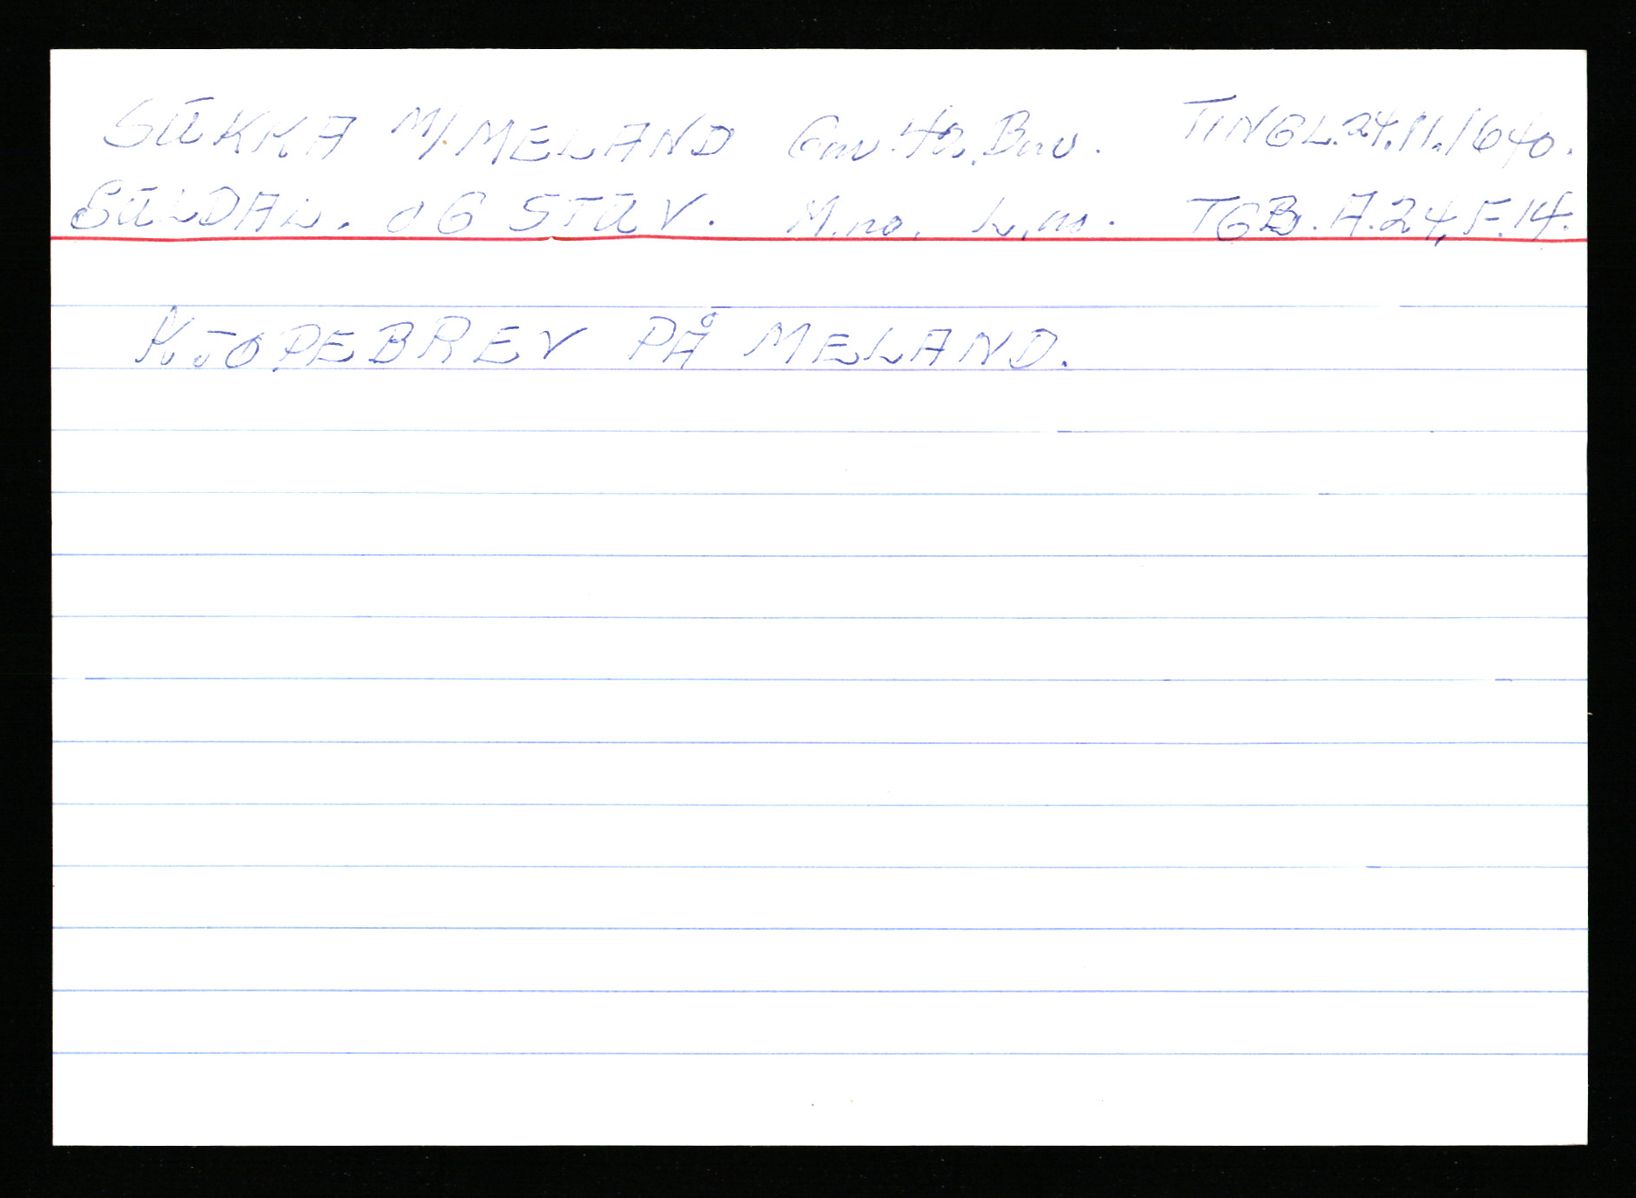 SUKKA M/MELAND Gnr. 42. Bnr. TINGL. 24.11.1640.
SULDAL. OG STUV. M.no. L.no. TGB. A.24, F.14.
KJØPEBREV PÅ MELAND.